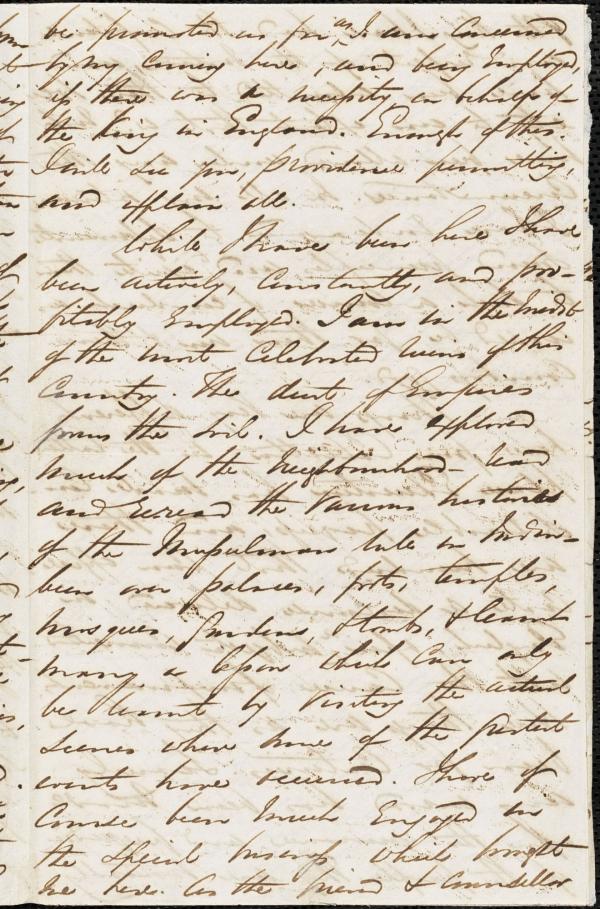 be promoted as far as I am concerned
by my coming here, and being employed,
if there was a necessity, on behalf of
the King in England. Enough of this.
I will see you, providence permitting,
and explain all.
While I have been here I have
been actively, constantly, and pro-
fitably employed. I am in the midst
of the most celebrated ruins of this
Country. The dust of Empires
forms the soil. I have explored
much of the neighbourhood – read
and reread the various histories
of the Musulman rule in India –
been over palaces, forts, temples,
mosques, gardens, & tombs, & learnt
many a lesson which can only
be learnt by visiting the actual
scenes where some of the greatest
events have occurred. I have of
course been much engaged in
the special business which brought
me here. As the friend & counsellor